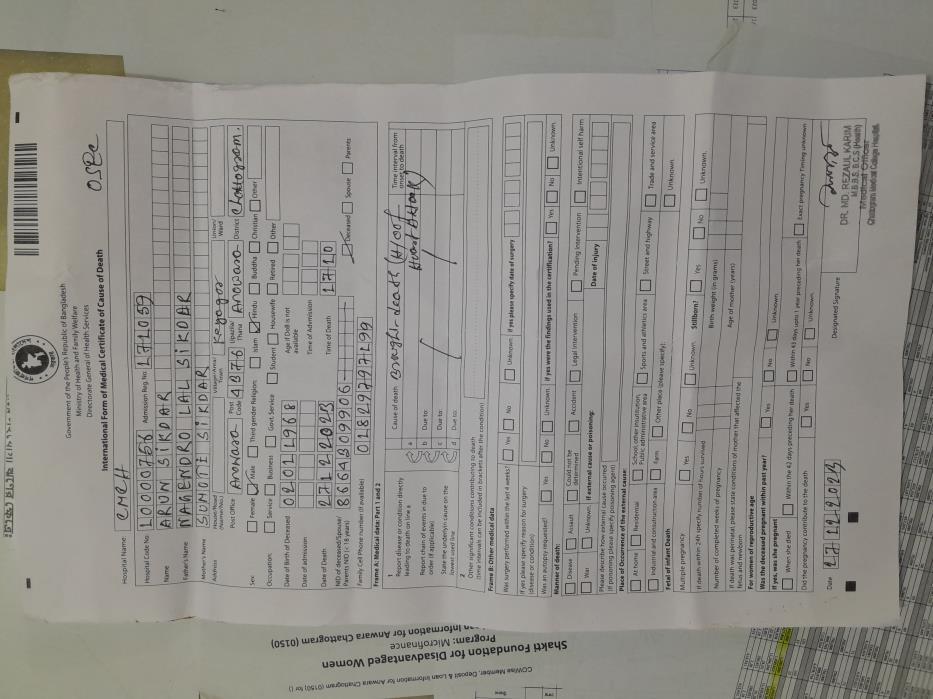 Government of the People's Republic of Bangladesh
Ministry of Health and Family Welfare
Directorate General of Health Services
International Form of Medical Certificate of Cause of Death
OSEC
Hospital Name: CMCH
Hospital Code No. 10000756 Admission Reg. No 171059
Name ARJUN SIKDAR
Father's Name NAGENDRO LAL SIKDAR
Mother's Name SUMOTI SIKDAR
Address House/Road (Name/No.) Village/Area/Town Keyagor Union/Ward
Post Office Anowara Post Code 4376 Upazila/Thana Anowara District Chattogram.
Sex: Female Male Third gender Religion: Islam Hindu Buddha Christian Other
Occupation: Service Business Govt. Service Student Housewife Retired Other
Date of Birth of Deceased 02011968 Age if DoB is not available
Date of admission Time of Admission
Date of Death 27122023 Time of Death 1710
NID of deceased/Spouse/Parents NID (< 18 years) 8664309906 Deceased Spouse Parents
Family Cell Phone number (If available) 01829797199
Frame A: Medical data: Part 1 and 2
1 Cause of death Time interval from onset to death
Report disease or condition directly leading to death on line a a Brought-death (H/O of Heart Attack)
Report chain of events in due to order (if applicable) b Due to:
c Due to:
State the underlyin cause on the lowest used line d Due to:
2 Other significant conditions contributing to death
(time intervals can be included in brackets after the condition)
Frame B: Other medical data
Was surgery performed within the last 4 weeks? Yes No Unknown If yes please specify date of surgery
If yes please specify reason for surgery (disease or condition)
Was an autopsy requested? Yes No Unknown. If yes were the findings used in the certification? Yes No Unknown.
Manner of death:
Disease Assault Could not be determined Accident Legal intervention Pending intervention Intentional self harm
War Unknown. If external cause or poisoning: Date of injury
Please describe how external cause occurred
(If poisoning please specify poisoning agent)
Place of Occurrence of the external cause:
At home Residential School, other institution, Public administrative area Sports and athletics area Street and highway Trade and service area
Industrial and construction area Farm Other place (please specify): Unknown.
Fetal of infant Death
Multiple pregnancy Yes No Unknown. Stillborn? Yes No Unknown.
If death within 24h specify number of hours survived Birth weight (in grams)
Number of completed weeks of pregnancy Age of mother (years)
If death was perinatal, please state conditions of mother that affected the fetus and newborn
For women of reproductive age
Was the deceased pregnant within past year? Yes No Unknown.
If yes, was she pregnant
When she died Within the 42 days preceding her death Within 43 days upto 1 year preceding her death Exact pregnancy Timing unknown
Did the pregnancy contribute to the death Yes No Unknown.
Date 27122023 Designated Signature
DR. MD. REZAUL KARIM
M.B.B.S, B.C.S (Health)
Medical Officer
Chattogram Medical College Hospital.
Shakti Foundation for Disadvantaged Women
Program: Microfinance
COWise Member, Deposit & Loan Information for Anwara Chattogram (0150) for ()